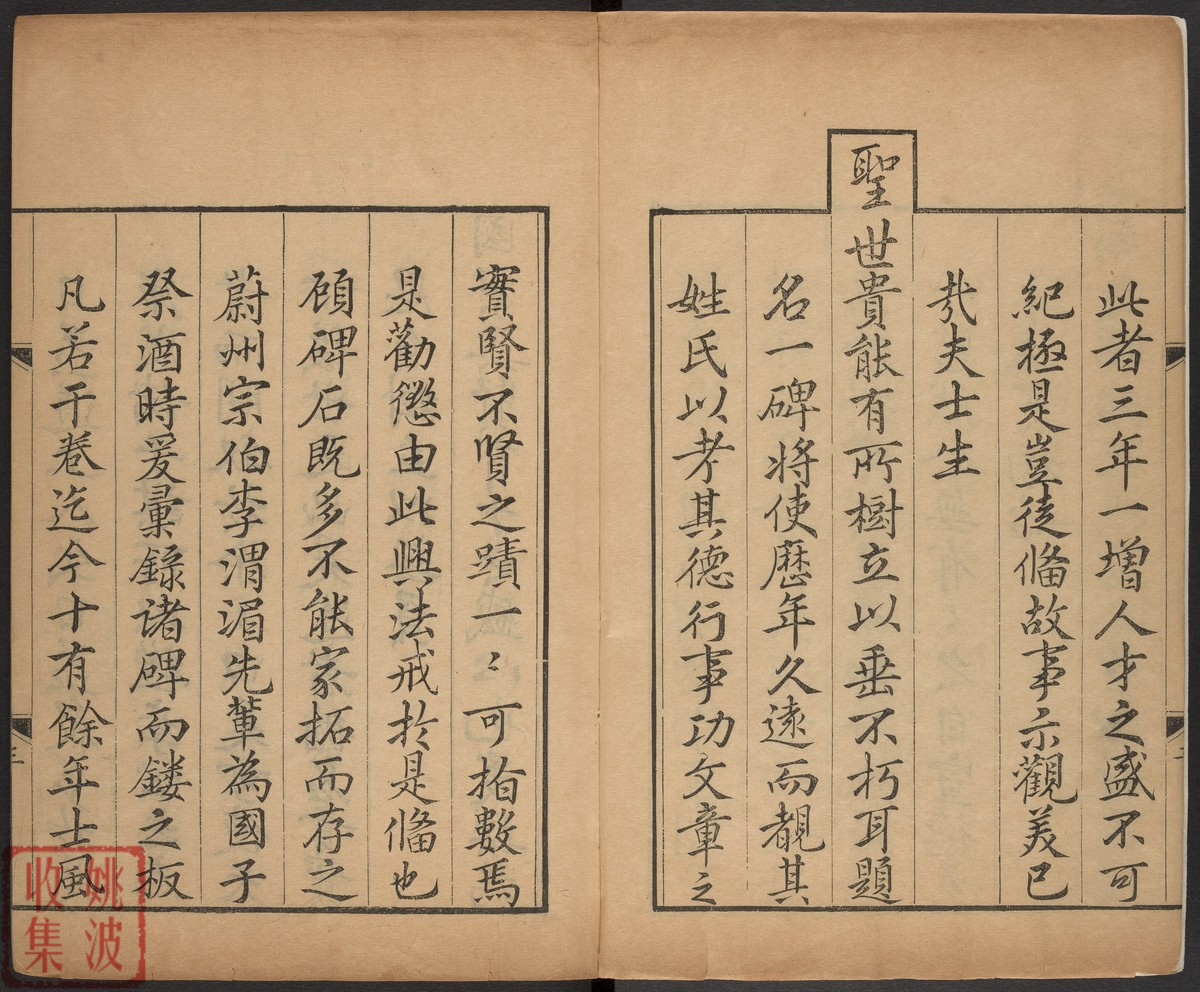 此者三年一增人才之盛不可
紀極是豈徒偹故事示觀美已
㢤夫士生
聖世貴能有所樹立以垂不朽耳題
名一碑將使歷年久遠而覩其
姓氏以考其德行事功文章之
二
實賢不賢之蹟一〻可指數焉
是勸懲由此興法戒於是偹也
顧碑石既多不能家拓而存之
蔚州宗伯李渭湄先軰為國子
祭酒時爰彚錄诸碑而鏤之板
凡若干卷迄今十有餘年士風
三
姚波
收集